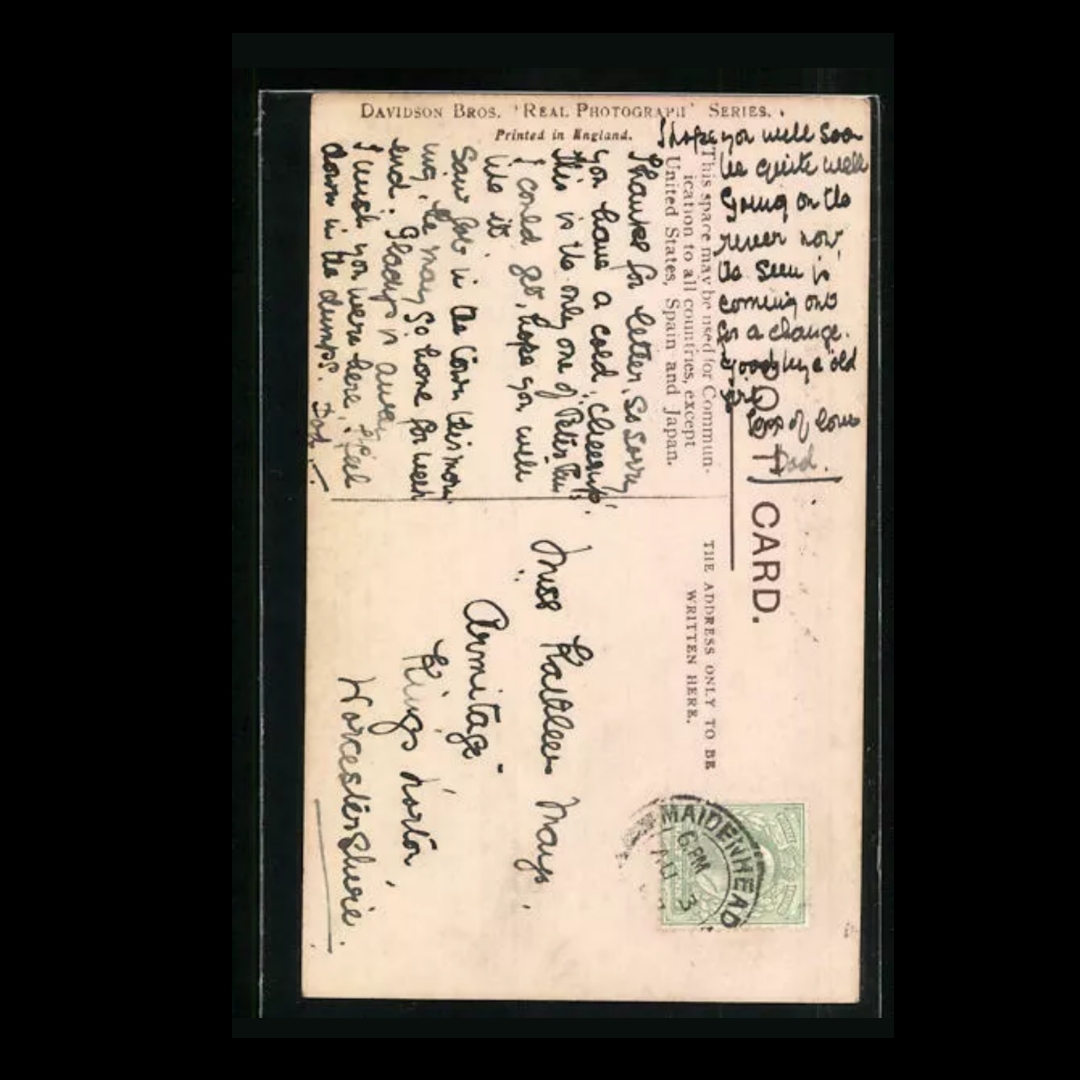 DAVIDSON BROS. 'REAL PHOTOGRAPH' SERIES.
Printed in England.
POST CARD.
This space may be used for Commun-
ication to all countries, except
United States, Spain and Japan.
THE ADDRESS ONLY TO BE
WRITTEN HERE.
Thanks for letter, so sorry
you have a cold, cheerup!
this is the only one of Peter Pan
I could get, hope you will
like it
Saw in the town this morn
he may go home for week
end. Gladys is away
I wish you were here, I feel
down in the dumps. Dod.
I hope you will soon
be quite well
Going on the
river now
the is
coming out
for a change.
Goodbye old
of love
Dod.
Miss Kathleen Mays.
"Armitage"
Kings Norton
Worcestershire.
MAIDENHEAD
6 PM
AU 3